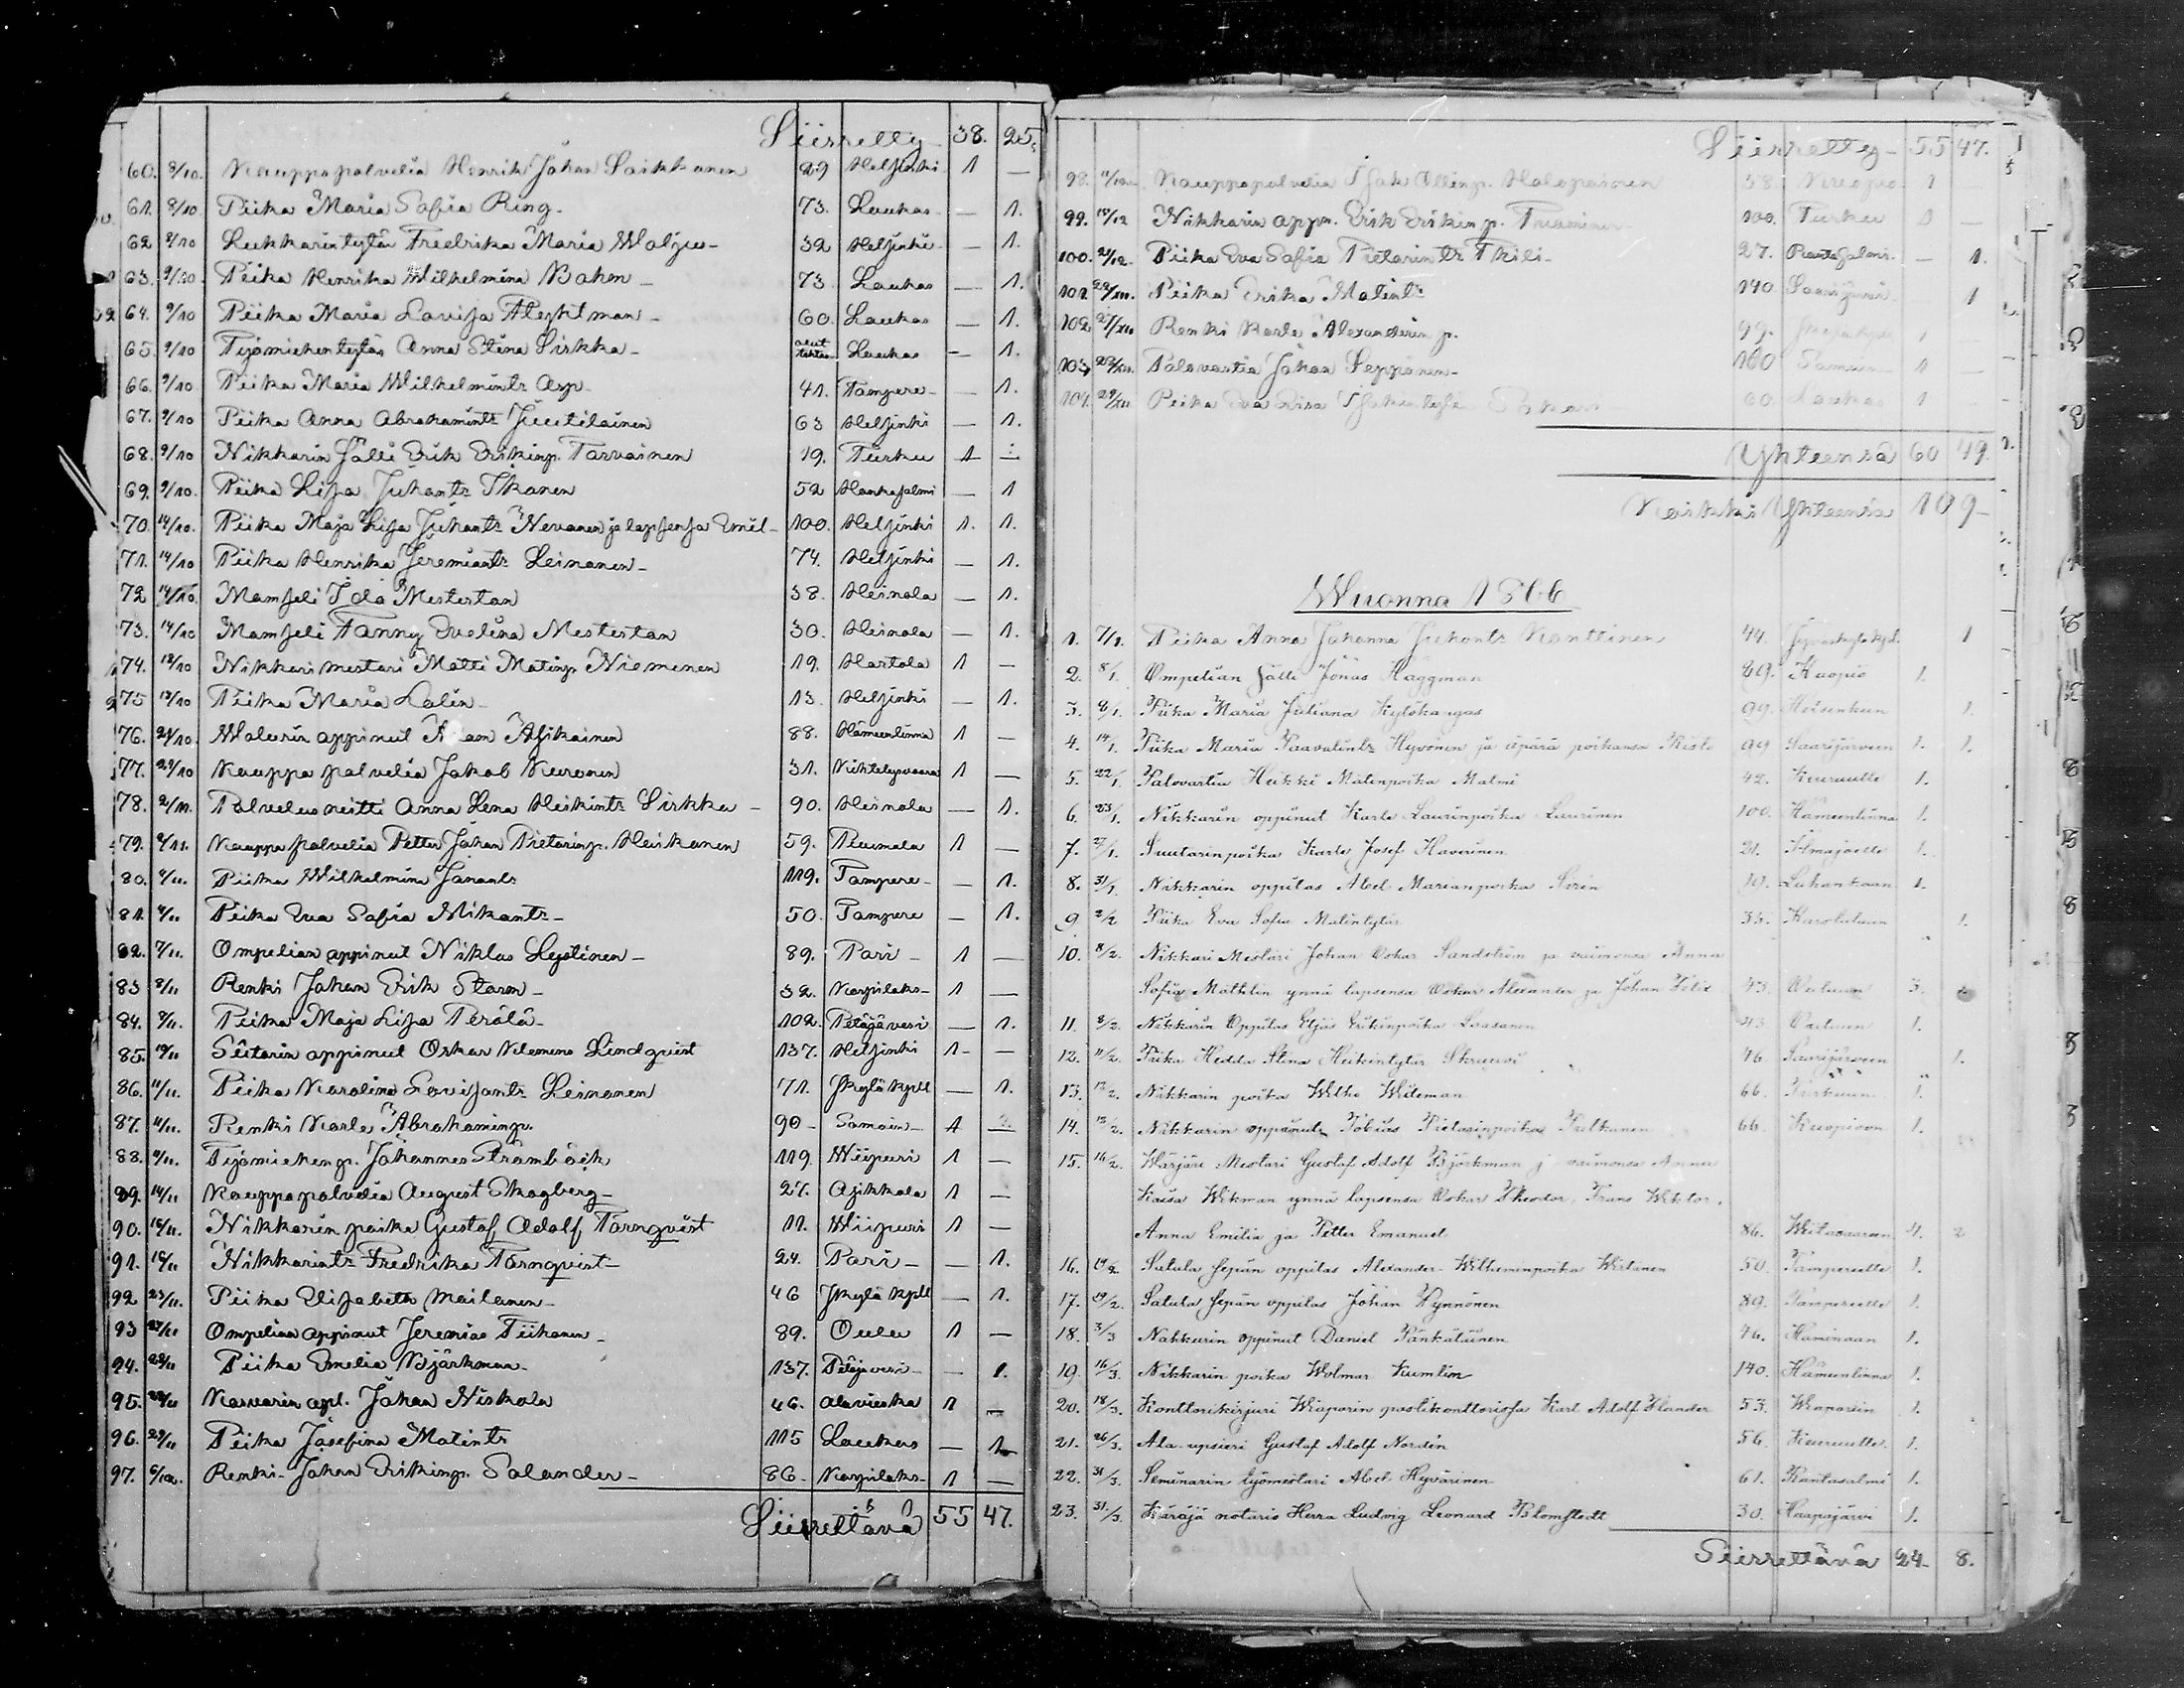 Siirretty 38. 25.
60. 8/10. Kauppapalvelia Henrik Johan Saikkonen 29 Helsinki 1 —
61. 8/10 Piika Maria Sofia Ring 73. Laukas — 1.
62 8/10 Lukkarintytär Fredrika Maria 32 Helsinki — 1.
63. 9/10. Piika Henrika Wilhelmina 73. Laukas — 1.
64. 9/10 Piika Maria Lovisa 60. Laukas — 1.
65. 9/10 Työmiehentytär Anna Stina Sirkka Laukas — 1.
66. 9/10 Piika Maria Wilhelmintr Asp 41. Tampere — 1.
67. 9/10 Piika Anna Abrahamintr Juutilainen 63 Helsinki — 1.
68. 9/10 Nikkarin Sälli Erik Erikinp. Tarvainen 19. Turku 1 —
69. 9/10. Piika Lisa Juhantr Ikonen 52 Hankasalmi — 1
70. 14/10. Piika Maja Lisa Juhantr Nevanen ja lapsensa Emil 100. Helsinki 1. 1.
71. 14/10 Piika Henrika Jeremiantr Leinonen 74. Helsinki — 1.
72 14/10. Mamseli Ida Mesterton 38. Heinola — 1.
73. 14/10 Mamseli Fanny Evelina Mesterton 30. Heinola — 1.
74. 18/10 Nikkari mestari Matti Matinp. Nieminen 19. Hartola 1 —
75 18/10 Piika Maria 13. Helsinki — 1.
76. 24/10. Malarin oppinut Asikainen 88. Hämeenlinna 1 —
77. 29/10 Kauppa palvelia Jakob Kuronen 31. Kiihtelysvaara 1 —
78. 2/11. Palvelus neitti Anna Lena Heikintr Sirkka 90. Heinola — 1.
79. 4/11. Kauppa palvelia Petter Johan Pietarinp. Heiskanen 59. Puumala 1 —
80. 4/11. Piika Wilhelmina 119. Tampere — 1.
81. 4/11 Piika Eva Sofia Mikontr 50. Tampere — 1.
82. 7/11. Ompelian oppinut Niklas Lystinen 89. Pori 1 —
83 8/11 Renki Johan Erik Storm 32. Karpilaks 1 —
84. 9/11. Piika Maja Lisa Perälä 102. Petäjävesi — 1.
85. 10/11 oppinut Oskar Klemens Lindqvist 137. Helsinki 1 —
86. 11/11. Piika Karolina Leinonen 71. Jkylä Kpll — 1.
87. 11/11. Renki Karle Abrahaminp. 90 1
88. 11/11. Työmiehenp. Johannes Strömbäck 119. Wiipuri 1 —
89. 14/11 Kauppapalvelia August Skogberg 27. Asikkala 1 —
90. 15/11. Nikkarin poika Gustaf Adolf Törnqvist 11. Wiipuri 1 —
91. 15/11 Nikkarintr Fredrika Törnqvist 24. Pori — 1.
92 23/11. Piika Elisabeth Moilanen 46 Jkylä Kpll — 1.
93 27/11 Ompelian oppinut Jeremias Tiihonen 89. Oulu 1 —
94. 28/11 Piika Emelia Björkman 137. Petäjävesi — 1.
95. 28/11 opl. Johan Niskala 46. Alavieska 1 —
96. 29/11 Piika Josefina Matintr 115 Laukas — 1
97. 6/12. Renki Johan Erikinp. Salander 86. Karpilaks 1 —
Siirrettävä 55 47.
Siirretty 55 47.
98. Kauppapalvelia Isak Ollinp. Holopainen 58. Kuopio 1 —
99. 19/12 Nikkarin oppn. Erik Erikinp. 100. Turku 1 —
100. 21/12. Piika Eva Sofia Pietarintr 27. Rantasalmi — 1.
101 Piika Erika Matintr 140 Saarijärvi 1
102. Renki Karle Alexanderin p. 99. 1
103 Palovartia Johan Seppänen 160 1 —
104. Piika Eva Lisa 60. Laukas 1 —
Yhteensä 60 49.
Kaikki Yhteensä 109
Wuonna 1866
1. 7/1. Piika Anna Johanna Juhontr Konttinen 44. Jyväskylä kpl. 1
2. 8/1. Ompelian sälli Jonas Häggman 89. Kuopio 1.
3. 8/1. Piika Maria Juliana Kylökangas 99. 1.
4. 14/1. Piika Maria Paavalintr Hyvönen ja äpärä poikansa Risto 99 Saarijärveen 1. 1.
5. 22/1. Palovartia Heikki Matinpoika Malmi 42. Keuruulle 1.
6. 23/1. Nikkarin oppinut Karle Laurinpoika Laurinen 100. Hämeenlinna 1.
7. 27/1. Suutarinpoika Karle Josef Haverinen 21. Ilmajoelle 1.
8. 31/1. Nikkarin oppilas Abel Marianpoika Siren 19. Luhankaan 1.
9 2/2 Piika Eva Sofia Matintytär 35. 1.
10. 8/2. Nikkari Mestari Johan Oskar Sandström ja vaimonsa Anna
Sofia Mathlin ynnä lapsensa Oskar Alexander ja Johan Felix 43. Ouluun 3. 1
11. 8/2. Nikkarin Oppilas Eljas Erikinpoika Laasanen 43. Ouluun 1.
12. 11/2. Piika Hedda Stina Heikintytär Skruuvi 46. Saarijärveen 1.
13. 12/2. Nikkarin poika Wilho Wideman 66. 1.
14. 12/2. Nikkarin oppinut Tobias Pietarinpoika Pulkanen 66. Kuopioon 1.
15. 14/2. Wärjäri Mestari Gustaf Adolf Björkman j vaimonsa Anna
Kaisa Wikman ynnä lapsensa Oskar Theodor, Frans Wiktor,
Anna Emilia ja Petter Emanuel 86. Wiitasaareen 4. 2
16. 19/2. Satula sepän oppilas Alexander Wilheminpoika Wirtanen 50. Tampereelle 1.
17. 19/2. Satula sepän oppilas Johan Kynnönen 89. Tampereelle 1.
18. 3/3 Nahkurin oppinut Daniel Pänkäläinen 46. Haminaan 1.
19. 16/3. Nikkarin poika Wolmar Kumlin 140. Hämeenlinna 1.
20. 18/3. Konttorikirjuri Wiaporin postikonttorissa Karl Adolf 53. Wiaporiin 1.
21. 26/3. Ala upsieri Gustaf Adolf Nordén 56. Keuruulle. 1.
22. 31/3. Seminarin työmestari Abel Hyvärinen 61. Rantasalmi 1.
23. 31/3. Käräjä notario Herra Ludvig Leonard Blomstedt 30. Haapajärvi 1.
Siirrettävä 24. 8.